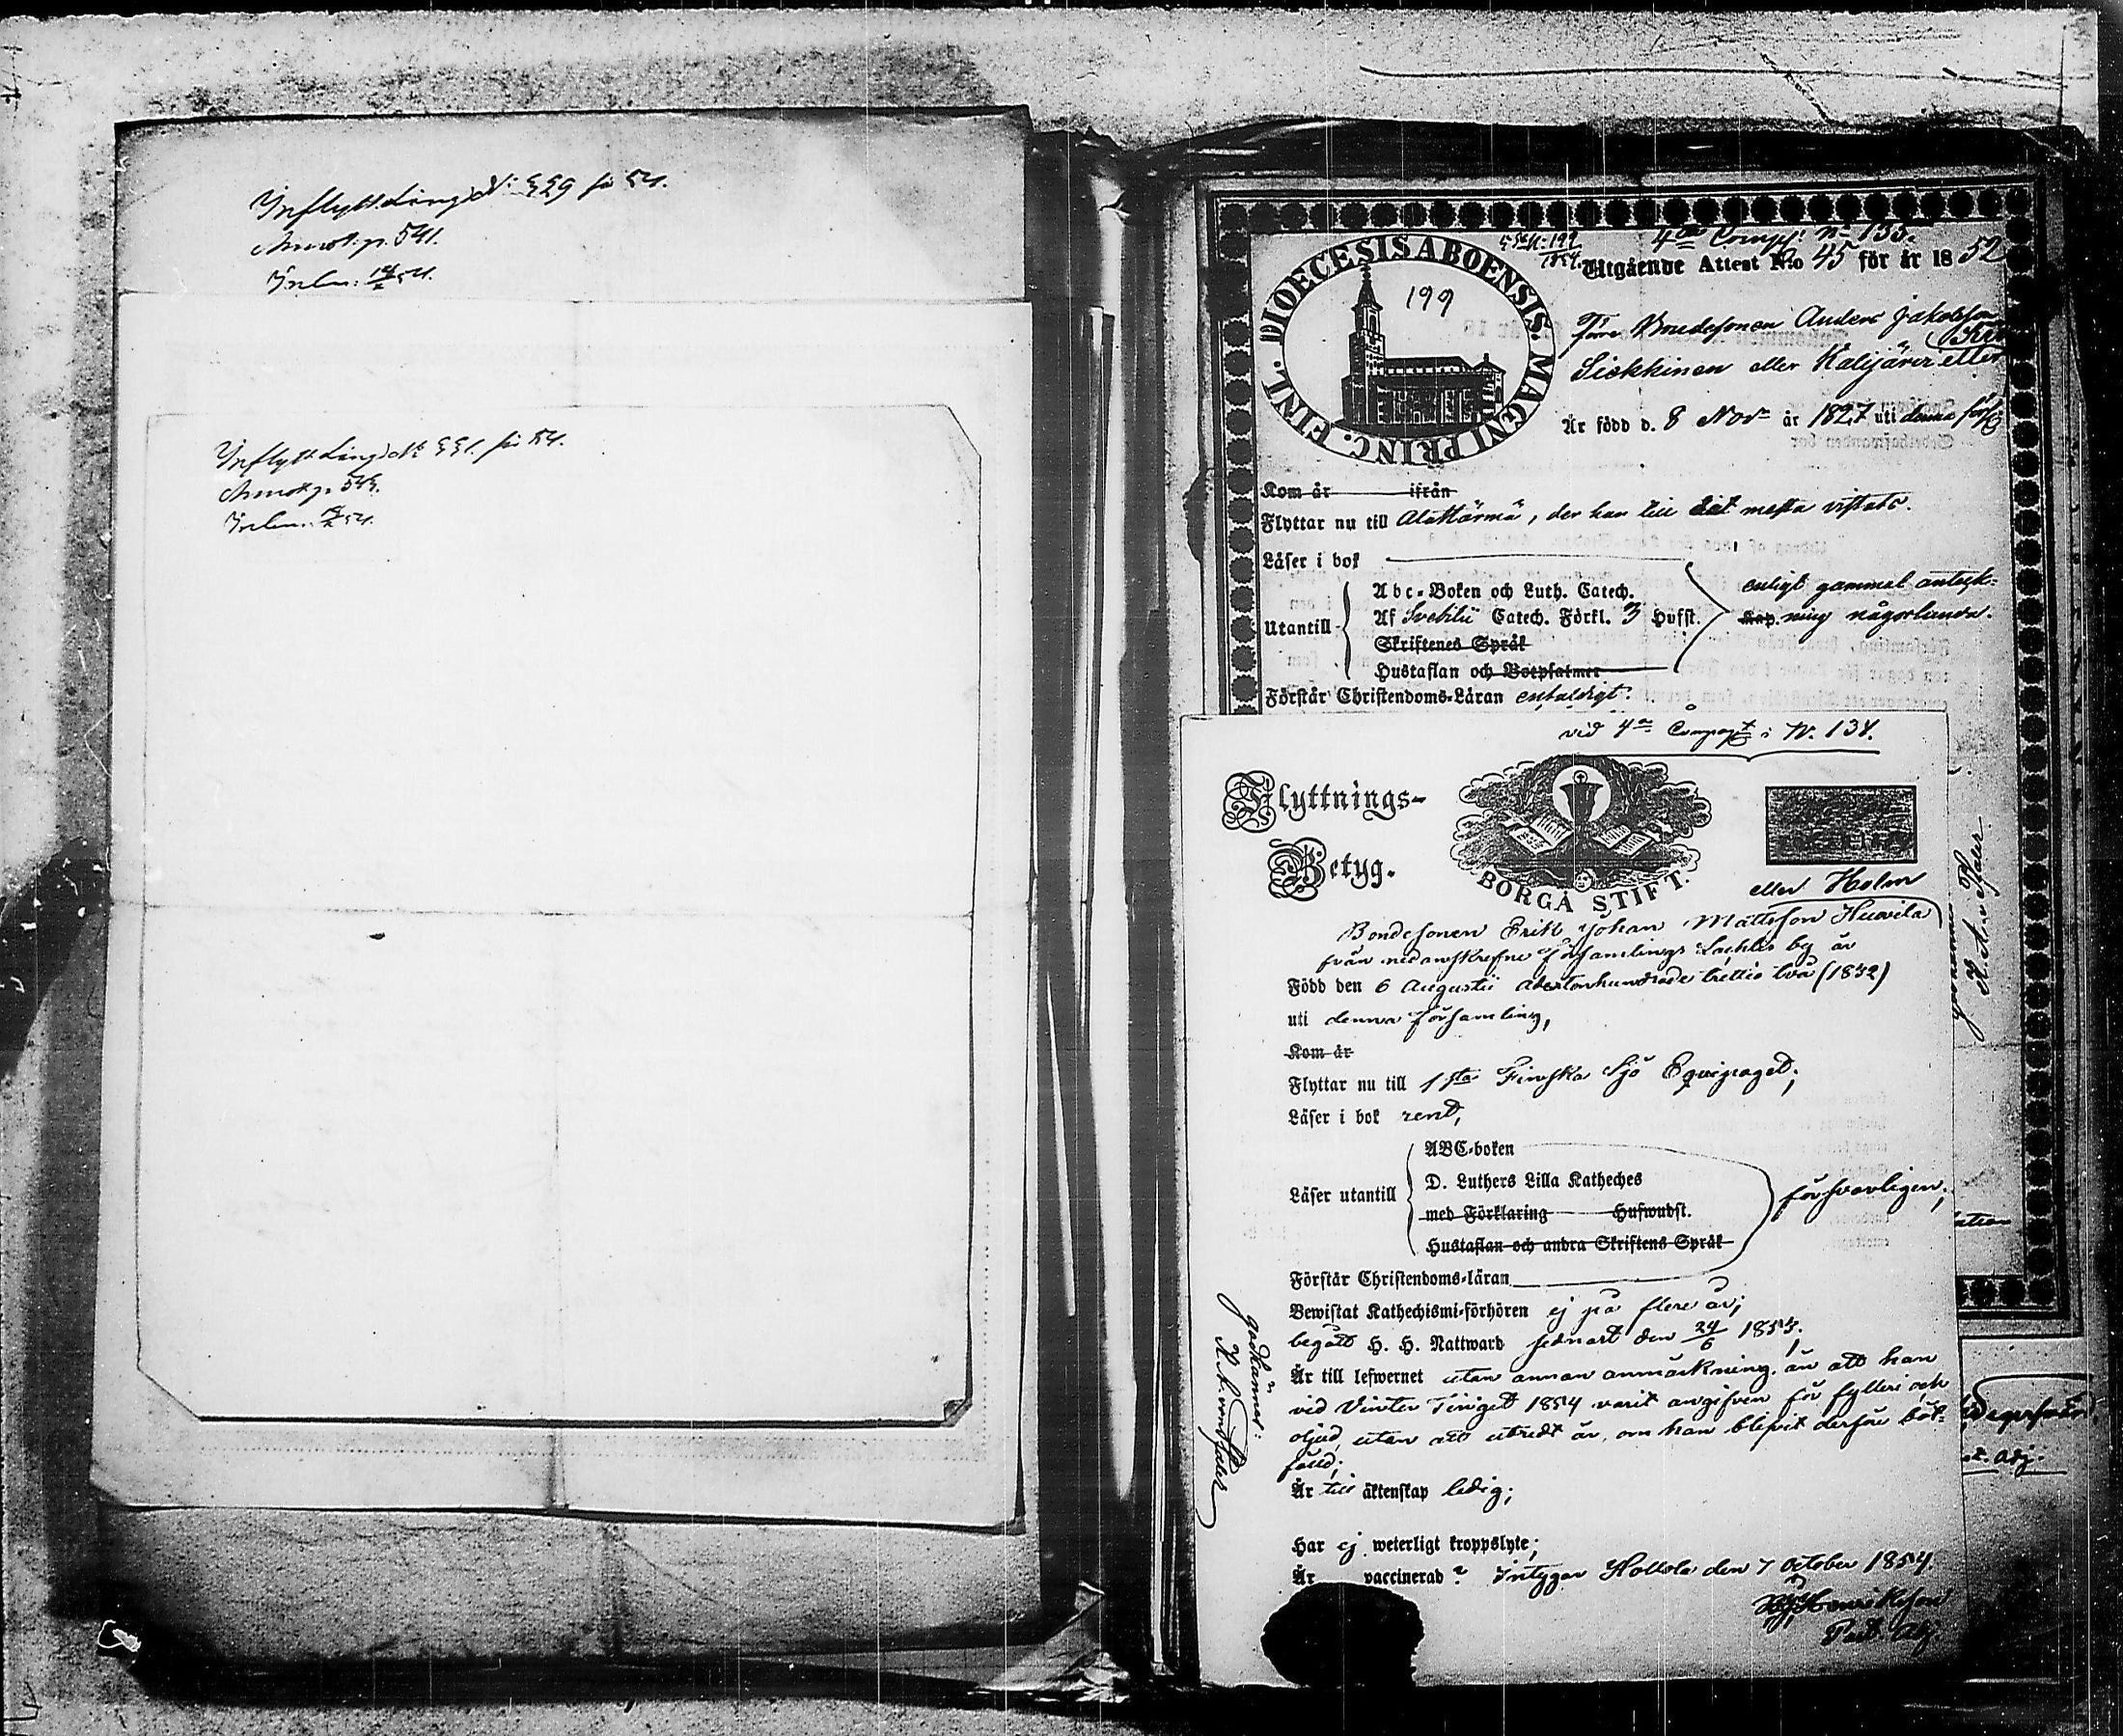 Inflyttsing N: 529 för 54.
Annot. p. 541.
Inflyttsing N 551. för 54.
Annot p. 543.
4de Comp: No 135.
Utgående Attest N:o 45 för år 1852
DIOECESIS ABOENSIS. MAGNI PRINC. FINL.
199
Före Bondesonen Anders Jakobsson
Siekkinen eller Kalijärvi eller
Är född d. 8 Novr år 1827 uti denna förs:
Kom år ifrån
Flyttar nu till Alattärmä, der han till det mesta vistats.
Läser i bok
Utantill
Abc-Boken och Luth. Catech.
Af Svebilii Catech. Förkl. 3 Hufst.
Skriftenes Språk
Hustaflan och Botpsalmer
enligt gammal anteck-
Kap. ning någorlunda.
Förstår Christendoms-Läran enfaldigt.
vid 4de Compagt: N. 134.
Flyttnings-
Betyg.
BORGÅ STIFT.
eller Holm
Bondesonen Erik Johan Mattsson Huovila
från nedanskrefne församlings Lahtis by är
Född den 6 Augustii adertonhundrade trettio två (1832)
uti denna församling,
Kom år
Flyttar nu till 1sta Finska Sjö Equipaget;
Läser i bok rent,
Läser utantill
ABC-boken
D. Luthers Lilla Katheches
med Förklaring Hufwudst.
Hustaflan och andra Skriftens Språk
försvarligen;
Förstår Christendoms-läran
Bewistat Kathechismi-förhören ej på flere år;
begått H. H. Nattward sednast den 24/6 1853;
Är till lefwernet utan annan anmärkning, än att han
vid Vinter Tinget 1854 varit angifven för fylleri och
oljud, utan att utredt är, om han blifvit derföre böt-
fälld;
Är till äktenskap ledig;
Har ej weterligt kroppslyte;
Är vaccinerad? Intygar Hollola den 7 October 1854.
Henriksson
Past. Adj
godkännes:
st. adj.